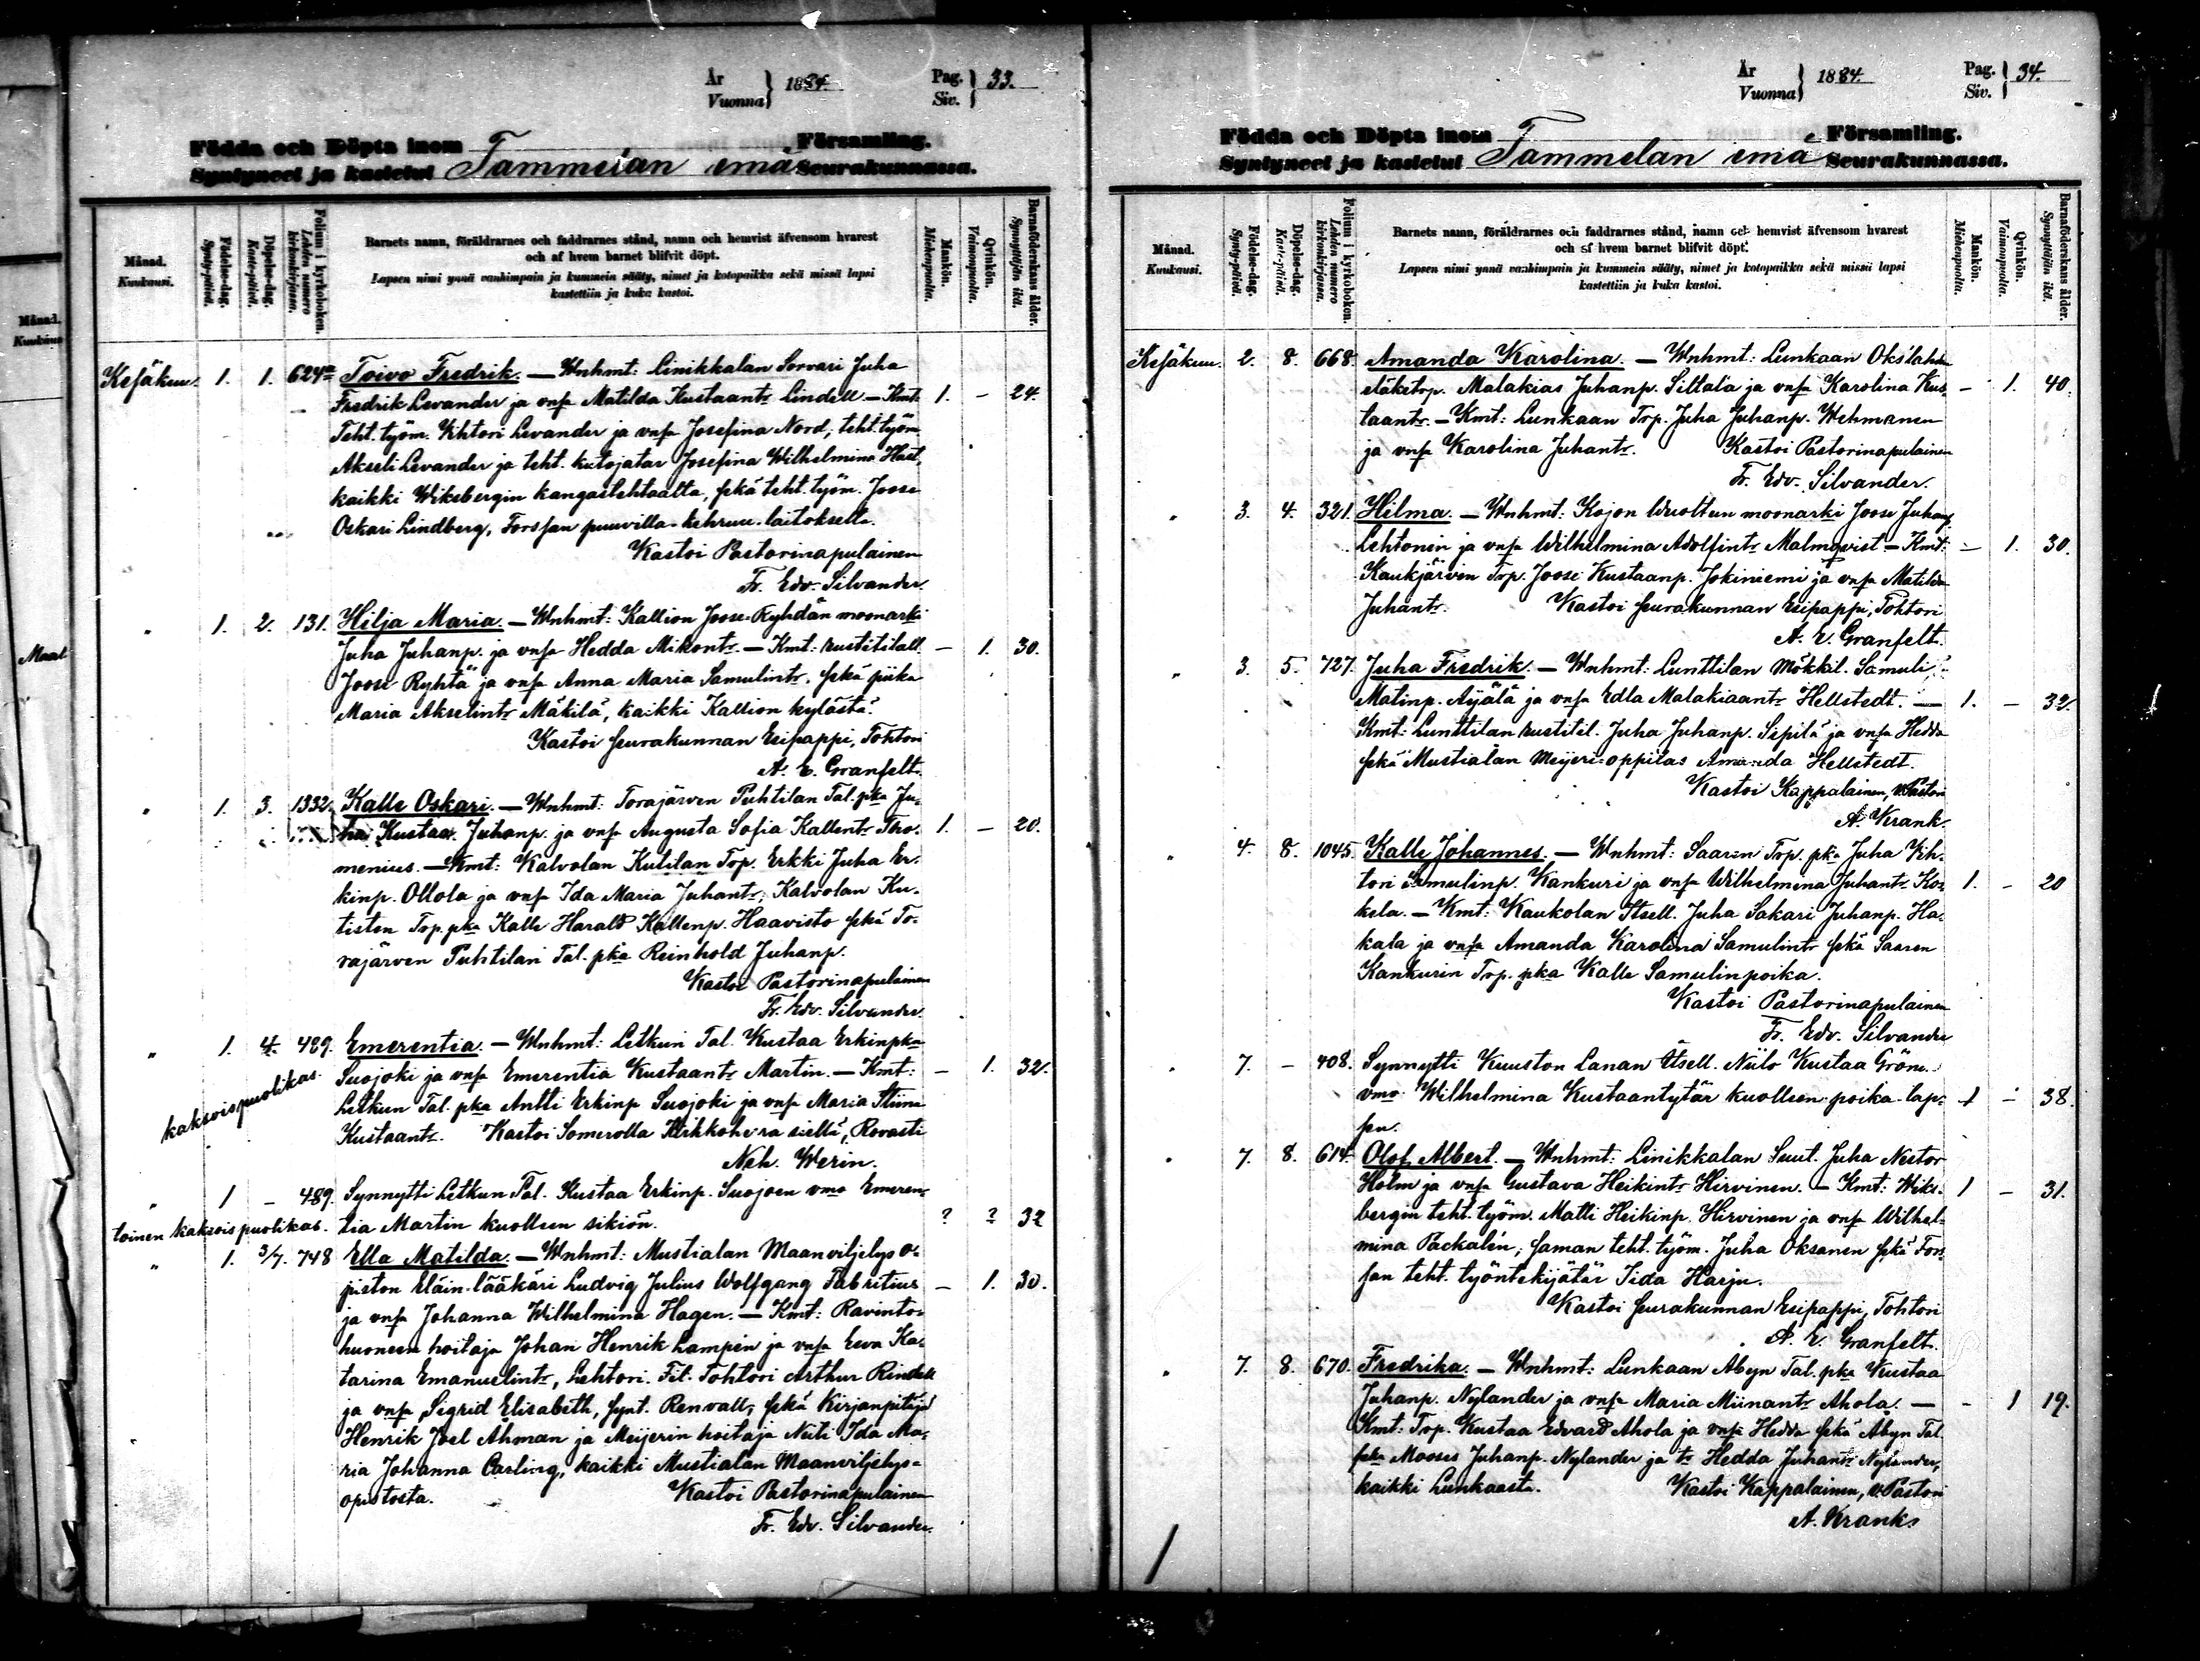 År
Vuonna } 1884. Pag.
Siv. } 33.
Födda och Döpta inom Församling.
Syntyneet ja kastetut Tammelan emä Seurakunnassa.
Månad. Kuukausi.
Födelse-dag. Synty-päivä.
Döpelse-dag. Kaste-päivä.
Folium i kyrkoboken. Lehden numero kirkonkirjassa.
Barnets namn, föräldrarnes och faddrarnes stånd, namn och hemvist äfvensom hvarest
och af hvem barnet blifvit döpt.
Lapsen nimi ynnä vanhimpain ja kummein sääty, nimet ja kotopaikka sekä missä lapsi
kastettiin ja kuka kastoi.
Mankön. Miehenpuolta.
Qvinkön. Vaimonpuolta.
Barnaföderskans ålder. Synnyttäjän ikä.
Kesäkuu. 1. 1. 624 Toivo Fredrik. — Wnhmt: Linikkalan Sorvari Juha
Fredrik Levander ja vnsa Matilda Kustaantr Lindell — Kmt: 1. — 24.
Teht. työm. Vihtori Levander ja vnsa Josefina Nord, teht. työm.
Akseli Levander ja teht. kutojatar Josefina Wilhelmina Hast,
kaikki Wiksbergin kangastehtaalta, sekä teht. työm. Joose
Oskari Lindberg, Forssan puuvilla-kehruu-laitokselta.
Kastoi Pastorinapulainen
Fr. Edv. Silvander.
" 1. 2. 131. Hilja Maria. — Wnhmt: Kallion Joose-Ryhdän moonarki
Juha Juhanp. ja vnsa Hedda Mikontr. — Kmt: rustitilall. — 1. 30.
Joose Ryhtä ja vnsa Anna Maria Samulintr. sekä piika
Maria Akselintr Mäkilä, kaikki Kallion kylästä.
Kastoi seurakunnan Esipappi, Tohtori
A. E. Granfelt.
" 1. 3. 1332. Kalle Oskari. — Wnhmt: Torajärven Puhtilan Tal. pka Ju-
ha Kustaa Juhanp. ja vnsa Augusta Sofia Kallentr Tho- 1. — 20.
menius. — Kmt: Kalvolan Kutilan Top. Erkki Juha Er-
kinp. Ollola ja vnsa Ida Maria Juhantr, Kalvolan Ku-
tisten Top. pka Kalle Harald Kallenp. Haavisto sekä To-
rajärven Puhtilan Tal. pka Reinhold Juhanp.
Kastoi Pastorinapulainen
Fr. Edv. Silvander.
" 1. 4. 489. Emerentia. — Wnhmt: Letkun Tal. Kustaa Erkinpka
kaksoispuolikas.
Suojoki ja vnsa Emerentia Kustaantr Martin. — Kmt: — 1. 32.
Letkun Tal. pka Antti Erkinp Suojoki ja vnsa Maria Stiina
Kustaantr. Kastoi Somerolla Kirkkoherra siellä, Rovasti
Neh. Werin.
" 1 — 489. Synnytti Letkun Tal. Kustaa Erkinp. Suojoen vmo Emeren-
toinen kaksoispuolikas. tia Martin kuolleen sikiön. ? ? 32
" 1. 3/7. 748 Ella Matilda. — Wnhmt: Mustialan Maanviljelys o-
piston Eläin-lääkäri Ludvig Julius Wolfgang Fabritius — 1. 30.
ja vnsa Johanna Wilhelmina Hagen. — Kmt: Ravinto-
huoneen hoitaja Johan Henrik Lampén ja vnsa Eeva Ka-
tarina Emanuelintr, Lehtori. Fil. Tohtori Arthur Rindell
ja vnsa Sigrid Elisabeth, synt. Renvall, sekä Kirjanpitäjä
Henrik Joel Åhman ja Meijerin hoitaja Neiti Ida Ma-
ria Johanna Carling, kaikki Mustialan Maanviljelys-
opistosta. Kastoi Pastorinapulainen
Fr. Edv. Silvander.
År
Vuonna } 1884. Pag.
Siv. } 34.
Födda och Döpta inom Församling.
Syntyneet ja kastetut Tammelan emä Seurakunnassa.
Månad. Kuukausi.
Födelse-dag. Synty-päivä.
Döpelse-dag. Kaste-päivä.
Folium i kyrkoboken. Lehden numero kirkonkirjassa.
Barnets namn, föräldrarnes och faddrarnes stånd, namn och hemvist äfvensom hvarest
och af hvem barnet blifvit döpt.
Lapsen nimi ynnä vanhimpain ja kummein sääty, nimet ja kotopaikka sekä missä lapsi
kastettiin ja kuka kastoi.
Mankön. Miehenpuolta.
Qvinkön. Vaimonpuolta.
Barnaföderskans ålder. Synnyttäjän ikä.
Kesäkuu. 2. 8. 668. Amanda Karolina. — Wnhmt: Lunkaan Okslahden
eläketop. Malakias Juhanp. Siltala ja vnsa Karolina Kus- — 1. 40.
taantr. — Kmt: Lunkaan Trp. Juha Juhanp. Wehmanen
ja vnsa Karolina Juhantr. Kastoi Pastorinapulainen
Fr. Edv. Silvander.
" 3. 4. 321. Hilma. — Wnhmt: Kojon Wuolteen moonarki Joose Juhanp
Lehtonen ja vnsa Wilhelmina Adolfintr Malmqvist — Kmt: — 1. 30.
Kaukjärven Trp. Joose Kustaanp. Jokiniemi ja vnsa Matilda
Juhantr. Kastoi seurakunnan Esipappi, Tohtori
A. E. Granfelt.
" 3. 5. 727. Juha Fredrik. — Wnhmt: Lunttilan Mökkil. Samuli
Matinp. Äijälä ja vnsa Edla Malakiaantr Hellstedt. — 1. — 32.
Kmt: Lunttilan rustitil. Juha Juhanp. Sipilä ja vnsa Hedda
sekä Mustialan Meijeri-oppilas Amanda Hellstedt.
Kastoi Kappalainen, v. Pastori
A. Krank.
" 4. 8. 1045. Kalle Johannes. — Wnhmt: Saaren Trp. pka Juha Vih-
tori Samulinp. Kankuri ja vnsa Wilhelmina Juhantr Ko- 1. — 20
kela. — Kmt: Kaukolan Itsell. Juha Sakari Juhanp. Ha-
kala ja vnsa Amanda Karolina Samulintr sekä Saaren
Kankurin Trp. pka Kalle Samulinpoika.
Kastoi Pastorinapulainen
Fr. Edv. Silvander
" 7. — 408. Synnytti Kuuston Lanan Itsell. Niilo Kustaa Grön
vmo Wilhelmina Kustaantytär kuolleen poika-lap- 1 — 38.
sen.
" 7. 8. 614. Olof Albert. — Wnhmt: Linikkalan Suut. Juha Nestor
Holm ja vnsa Gustava Heikintr Hirvinen. — Kmt: Wiks- 1 — 31.
bergin teht. työm. Matti Heikinp. Hirvinen ja vnsa Wilhel-
mina Packalén, saman teht. työm. Juha Oksanen sekä Fors-
san teht. työntekijätär Iida Harju.
Kastoi seurakunnan Esipappi, Tohtori
A. E. Granfelt.
" 7. 8. 670. Fredrika. — Wnhmt: Lunkaan Åbyn Tal. pka Kustaa
Juhanp. Nylander ja vnsa Maria Miinantr Ahola. — - 1 19.
Kmt: Trp. Kustaa Edvard Ahola ja vnsa Hedda sekä Åbyn Tal.
pka Mooses Juhanp. Nylander ja tr Hedda Juhantr Nylander,
kaikki Lunkaasta. Kastoi Kappalainen, v. Pastori
A. Krank.